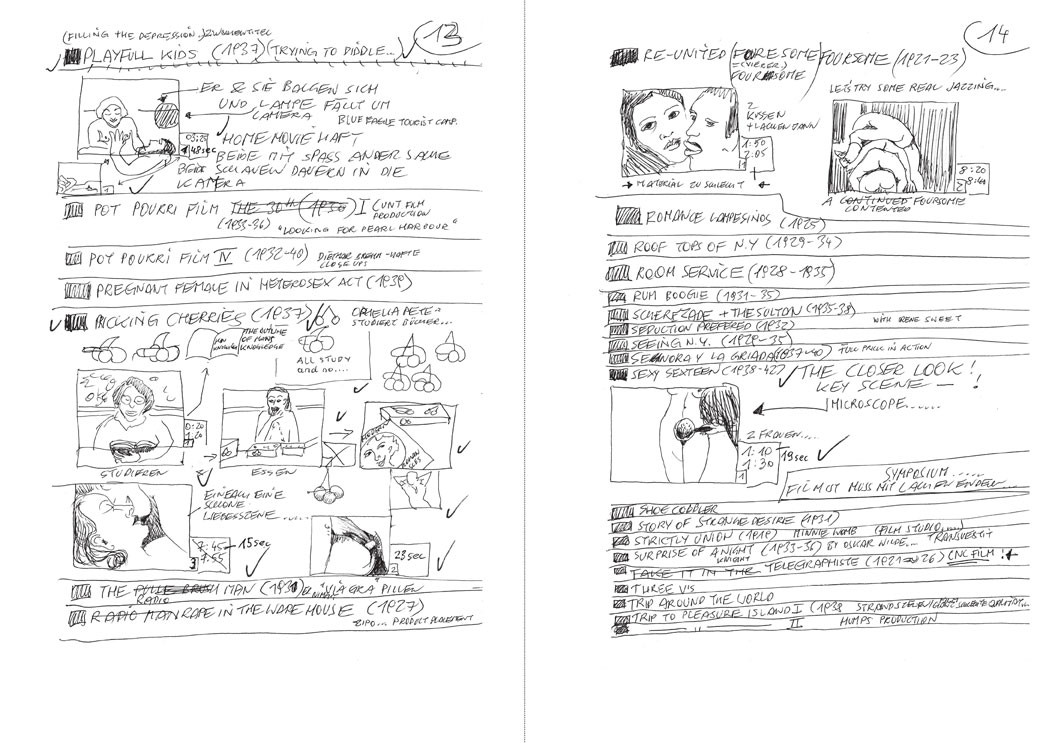 (FILLING THE DEPRESSION.)
13
PLAYFULL KIDS (1937) (TRYING TO DIDDLE...)
ER & SIE BALGEN SICH
UND LAMPE FÄLLT UM
CAMERA
BLUE EAGLE TOURIST CAMP.
HOME MOVIE HAFT
BEIDE MIT SPASS AN DER SACHE
BEIDE SCHAUEN DAUERN IN DIE
KAMERA
48sec
1
POT POURRI FILM THE 30th (1936) I
(1933-36) "LOOKING FOR PEARL HARBOUR"
POT POURRI FILM IV (1932-40)
CLOSE UPS
PREGNANT FEMALE IN HETEROSEX ACT (1939)
PICKING CHERRIES (1937)
CAMELLA PETE
STUDIERT BÜCHER...
ALL STUDY
and no....
0:20
1:20
STUDIEREN
ESSEN
EINFACH EINE
SCHÖNE
LIEBESSZENE......
7:45
7:55
15sec
3
23sec
2
THE PULLE BRUSH MAN (1930) VIAGRA PILLEN
RADIO
RADIO MAN RAPE IN THE WAREHOUSE (1927)
ZIPO... PRODUCT PLACEMENT
14
RE-UNITED FOURESOME FOURSOME (1921-23)
(VIERER)
FOURSOME
LETS TRY SOME REAL JAZZING....
2
KÜSSEN
+ LACHEN DANN
1:50
2:05
1
MATERIAL ZU SCHLECHT
8:20
8:40
2
A CONTINUED FOURSOME
CONTENTED
ROMANCE CAMPESINOS (1925)
ROOF TOPS OF N.Y (1929-34)
ROOM SERVICE (1928-1935)
RUM BOOGIE (1931-35)
SCHEREZADE + THE SULTON (1935-38)
WITH IRENE SWEET
SEDUCTION PREFERED (1932)
SEEING N.Y. (1929-35)
SENORA Y LA GRIADA (1937-40) FULL PRICK IN ACTION
SEXY SEXTEEN (1938-42) THE CLOSER LOOK!
KEY SCENE - !
MICROSCOPE......
2 FRAUEN....
1:10
1:30
19sec
SYMPOSIUM.....
FILM IST MUSS MIT LACHEN ENDEN...
SHOE COBBLER
STORY OF STRANGE DESIRE (1931)
STRICTLY UNION (1919) MINNIE WOMB (FILM STUDIO.....)
SURPRISE OF A NIGHT (1933-36) BY OSCAR WILDE... TRANSVESTIT
KNIGHT
TAKE IT IN THE TELEGRAPHISTE (1921-26) CNC FILM!
THREE V'S
TRIP AROUND THE WORLD
TRIP TO PLEASURE ISLAND I (1938 STRANDSZENEN
II HUMPS PRODUCTION